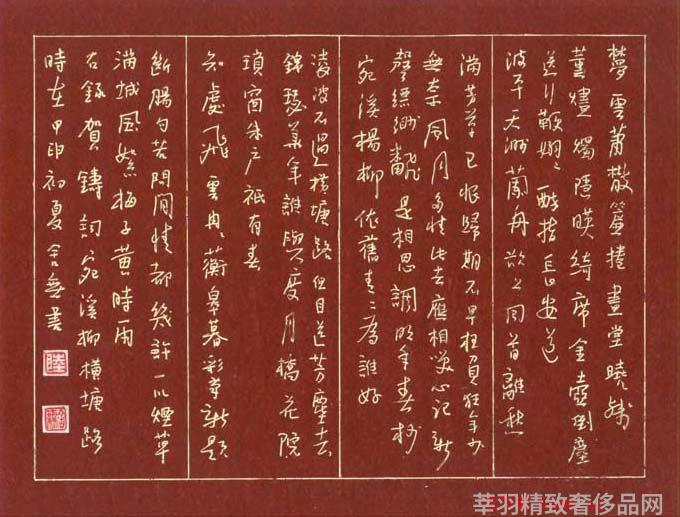 夢雲蕭散簾捲畫堂曉殘
薰燼燭隱映綺席金壺倒塵
送行鞭嫋々醉指長安道
波平天渺蘭舟欲上回首離愁
滿芳草已恨歸期不早枉負狂年少
無奈風月多情此去應相笑心記新
聲縹緲翻是相思調明年春杪
宛溪楊柳依舊青々為誰好
凌波不過橫塘路但目送芳塵去
錦瑟華年誰與度月橋花院
瑣窗朱戶祇有春
知處飛雲冉々蘅皋暮彩筆新題
斷腸句若問閒情都幾許一川煙草
滿城風絮梅子黃時雨
右錄賀鑄詞宛溪柳橫塘路
時在甲申初夏舍無書
陸
莘羽精致奢侈品网